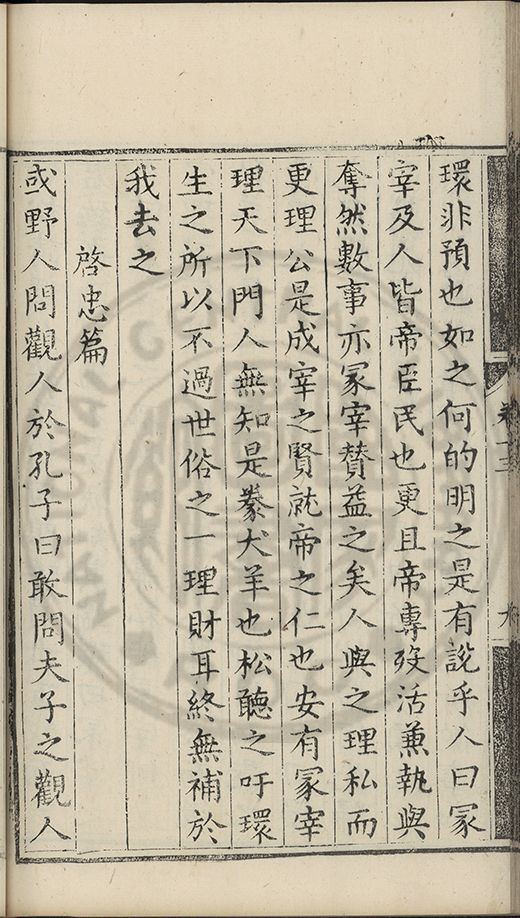 環非預也如之何的明之是有說乎人曰冢
宰及人皆帝臣民也更且帝專歿活兼執與
奪然數事亦冢宰贊益之矣人與之理私而
更理公是成宰之賢就帝之仁也安有冢宰
理天下門人無知是豢犬羊也松聽之吁環
生之所以不過世俗之一理財耳終無補於
我去之
啓忠篇
或野人問觀人於孔子曰敢問夫子之觀人